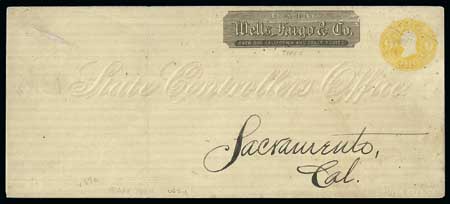 PAID
Wells, Fargo & Co.
OVER OUR CALIFORNIA AND COAST ROUTES
State Controllers Office
Sacramento,
Cal.